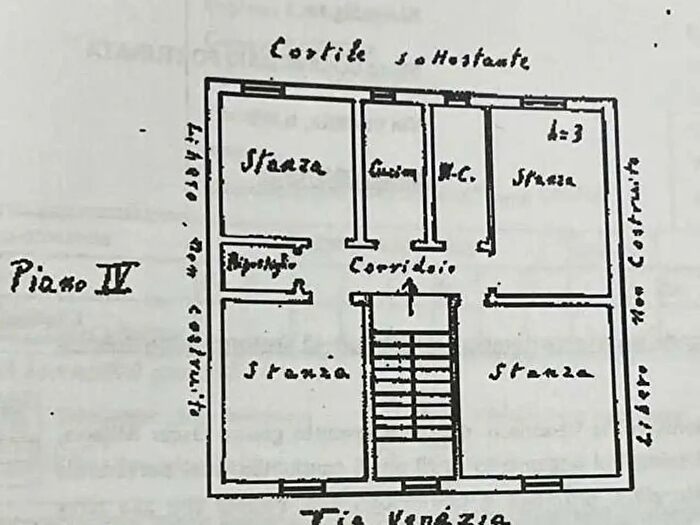 Cortile sottostante
h=3
Stanza
Cucina
W.C.
Stanza
Libero, non costruito
Ripostiglio
Corridoio
Piano IV
Libero non Costruito
Stanza
Stanza
Via Venezia